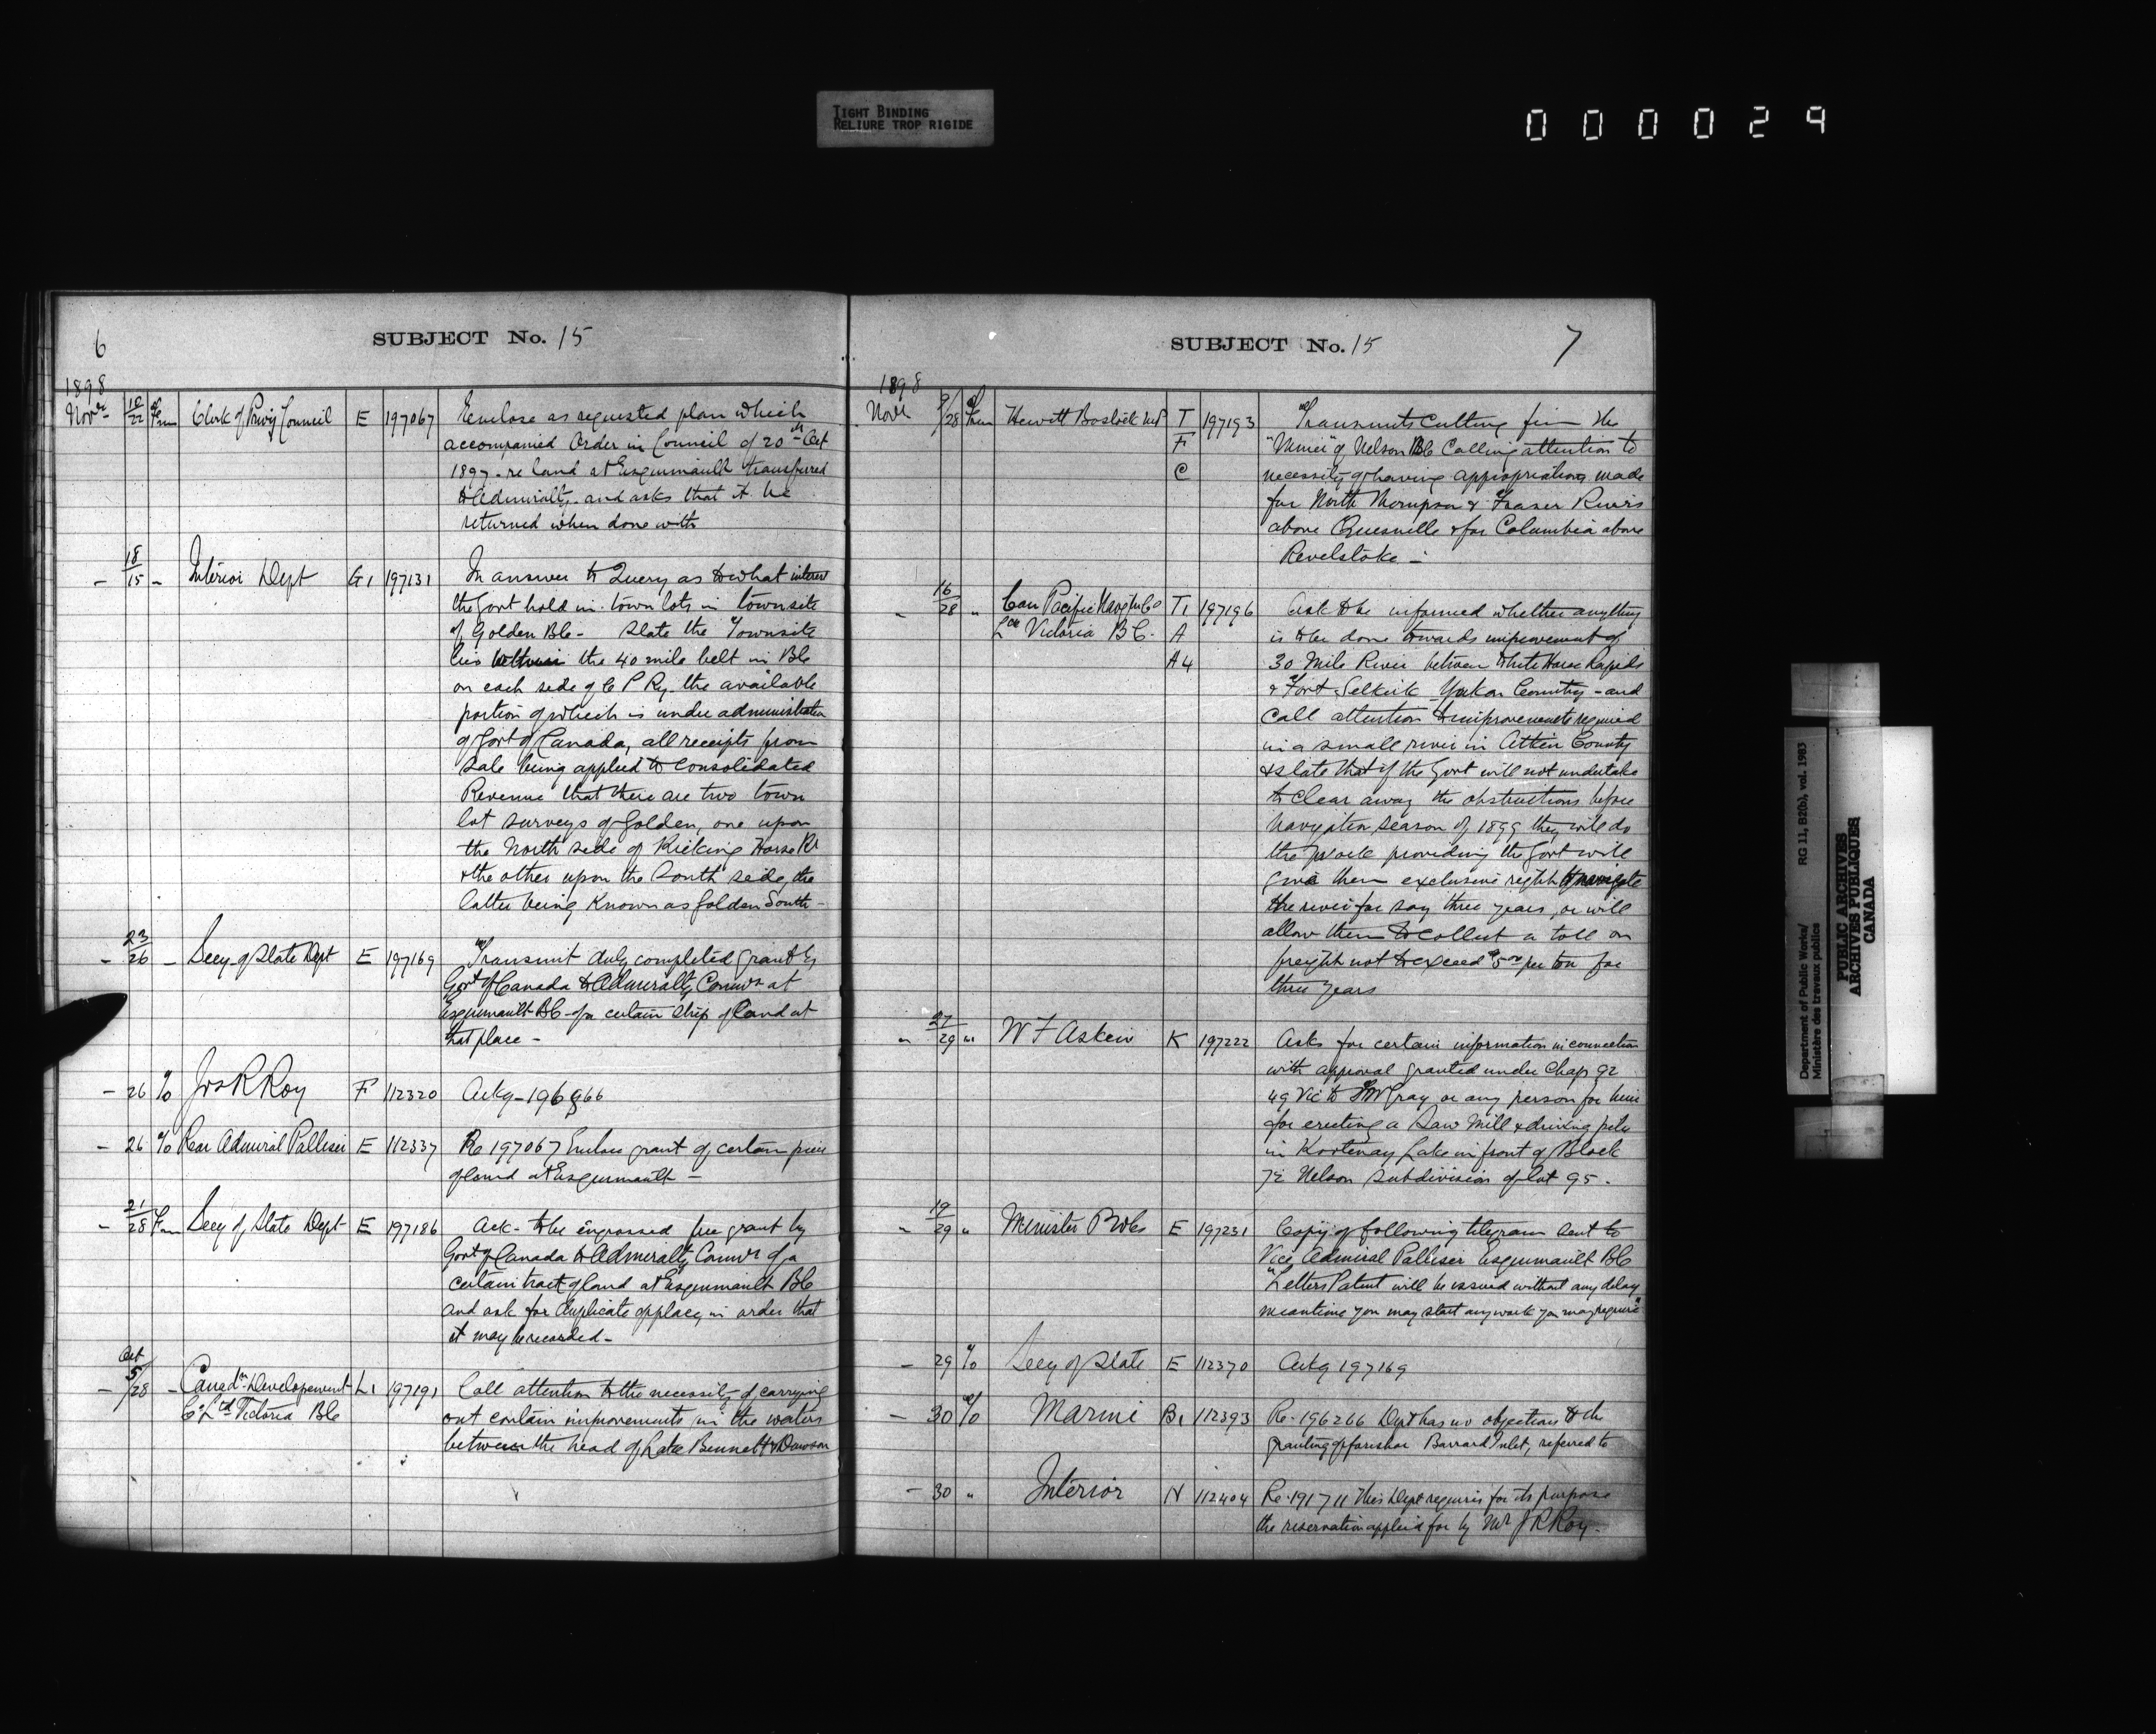 TIGHT BINDING
RELIURE TROP RIGIDE
000029
6
SUBJECT No. 15
1898
Novr 10/22 Frm Clerk of Privy Council E 197067 Enclose as requested plan which
accompanied Order in Council of 20th Oct
1897 - re land at Esquimault transferred
to Admiralty and asks that it be
returned when done with
- 18/15 - Interior Dept G1 197131 In answer to Query as to what interest
the Govt hold in town lots in townsite
of Golden BC - State the Townsite
lies within the 40 mile belt in BC
on each side of C P Ry. the available
portion of which is under administration
of Govt of Canada, all receipts from
Sale being applied to Consolidated
Revenue that there are two town
lot surveys of Golden, one upon
the North side of Kicking Horse R
& the other upon the South side, the
latter being Known as Golden South -
- 23/26 - Secy of State Dept E 197169 Transmit duly completed grant by
Govt of Canada to Admiralty Commrs at
Esquimault BC - of a certain strip of land at
that place -
- 26 To Jos R Roy F 112320 Ackg - 196966
- 26 To Rear Admiral Palliser E 112337 Re 197067 Enclose grant of certain piece
of land at Esquimault -
- 21/28 Frm Secy of State Dept E 197186 Ack - to be engrossed free grant by
Govt of Canada to Admiralty Commrs of a
certain tract of land at Esquimault BC
and ask for duplicate of place, in order that
it may be recorded -
- Oct 5/28 - Canadn Developement L1 197191 Call attention to the necessity of carrying
Co Ltd Victoria BC out certain improvements in the waters
between the head of Lake Bennett & Dawson
SUBJECT No. 15
7
1898
Novr 9/28 Frm Hewitt Bostock MP T 197193 Transmits Cutting from the
F "Miner" of Nelson BC Calling attention to
C necessity of having appropriations made
for North Thompson & Fraser Rivers
above Quesnelle & for Columbia above
Revelstoke -
- 16/28 " Can Pacific Navgtn Co T1 197196 Ask to be informed whether anything
Ltd Victoria BC. A is to be done towards improvement of
A4 30 Mile River between White Horse Rapids
& Fort Selkirk Yukon Country - and
Call attention to improvements required
in a small river in Atlin County
& State that if the Govt will not undertake
to clear away the obstructions before
Navigation Season of 1899 they will do
the work providing the Govt will
give them exclusive right to navigate
the river for say three years, or will
allow them to collect a toll on
freight not to exceed $5.00 per ton for
three years
" 27/29 " W F Askew K 197222 Asks for certain information in connection
with approval granted under Chap 92
49 Vic to Gray or any person for him
for erecting a Saw Mill & driving piles
in Kootenay Lake in front of Block
Nelson Subdivision of lot 95.
" 19/29 " Minister P Wks E 197231 Copy of following telegram sent to
Vice Admiral Palliser Esquimault BC
"Letters Patent will be issued without any delay
meantime you may start any work you may require"
- 29 To Secy of State E 112370 Ackg 197169
- 30 To Marine B1 112393 Re - 196266 Dept has no objection to the
granting of foreshore Burrard Inlet, referred to
- 30 " Interior N 112404 Re - 191711 this Dept requires for its purpose
the reservation applied for by Mr J R Roy -
Department of Public Works/
Ministère des travaux publics
RG 11, B2(b), vol. 1983
PUBLIC ARCHIVES
ARCHIVES PUBLIQUES
CANADA